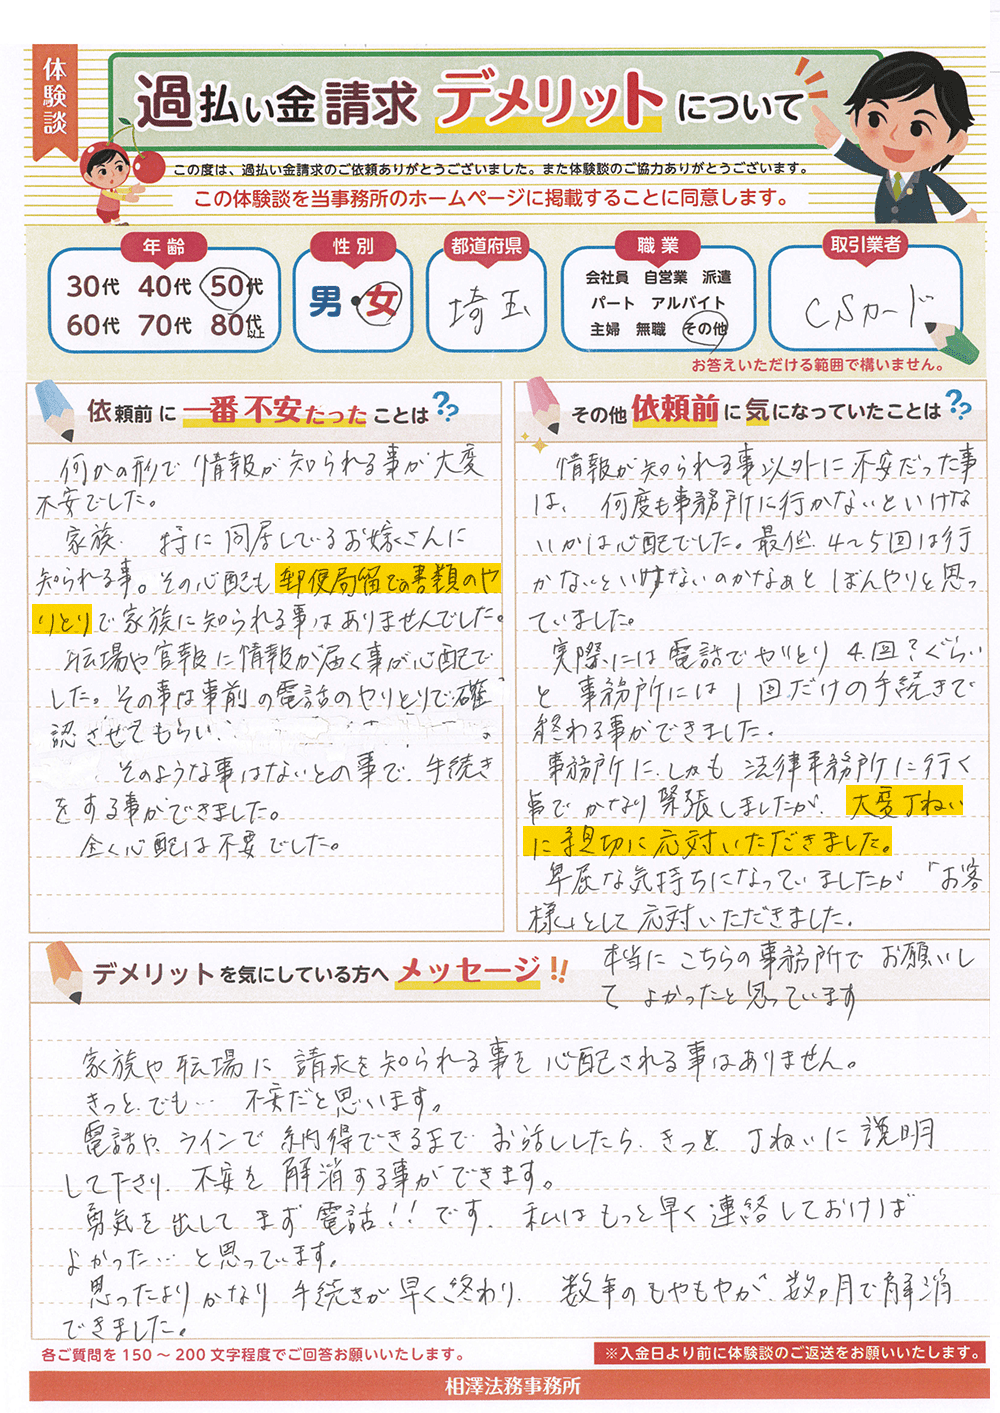 体験談
過払い金請求 デメリットについて
この度は、過払い金請求のご依頼ありがとうございました。また体験談のご協力ありがとうございます。
この体験談を当事務所のホームページに掲載することに同意します。
年齢
30代 40代 50代
60代 70代 80代以上
性別
男・女
都道府県
埼玉
職業
会社員 自営業 派遣
パート アルバイト
主婦 無職 その他
取引業者
CSカード
お答えいただける範囲で構いません。
依頼前に一番不安だったことは??
何かの形で情報が知られる事が大変
不安でした。
家族、特に同居しているお嫁さんに
知られる事。その心配も郵便局留での書類のや
りとりで家族に知られる事はありませんでした。
職場や官報に情報が届く事が心配で
した。その事は事前の電話のやりとりで確
認させてもらい、
そのような事はないとの事で、手続き
をする事ができました。
全く心配は不要でした。
その他依頼前に気になっていたことは??
情報が知られる事以外に不安だった事
は、何度も事務所に行かないといけな
いかは心配でした。最低4~5回は行
かないといけないのかなぁとぼんやりと思っ
ていました。
実際には電話でやりとり4回?ぐらい
と事務所には1回だけの手続きで
終わる事ができました。
事務所に、しかも法律事務所に行く
事でかなり緊張しましたが、大変丁ねい
に親切に応対いただきました。
卑屈な気持ちになっていましたが「お客
様」として応対いただきました。
本当にこちらの事務所でお願いし
てよかったと思っています
デメリットを気にしている方へメッセージ!!
家族や職場に請求を知られる事を心配される事はありません。
きっと、でも… 不安だと思います。
電話や、ラインで納得できるまでお話ししたら、きっと丁ねいに説明
して下さり、不安を解消する事ができます。
勇気を出してまず電話!!です。私はもっと早く連絡しておけば
よかった…と思っています。
思ったよりかなり手続きが早く終わり、数年のもやもやが、数ヶ月で解消
できました。
各ご質問を150～200文字程度でご回答お願いいたします。
※入金日より前に体験談のご返送をお願いいたします。
相澤法務事務所